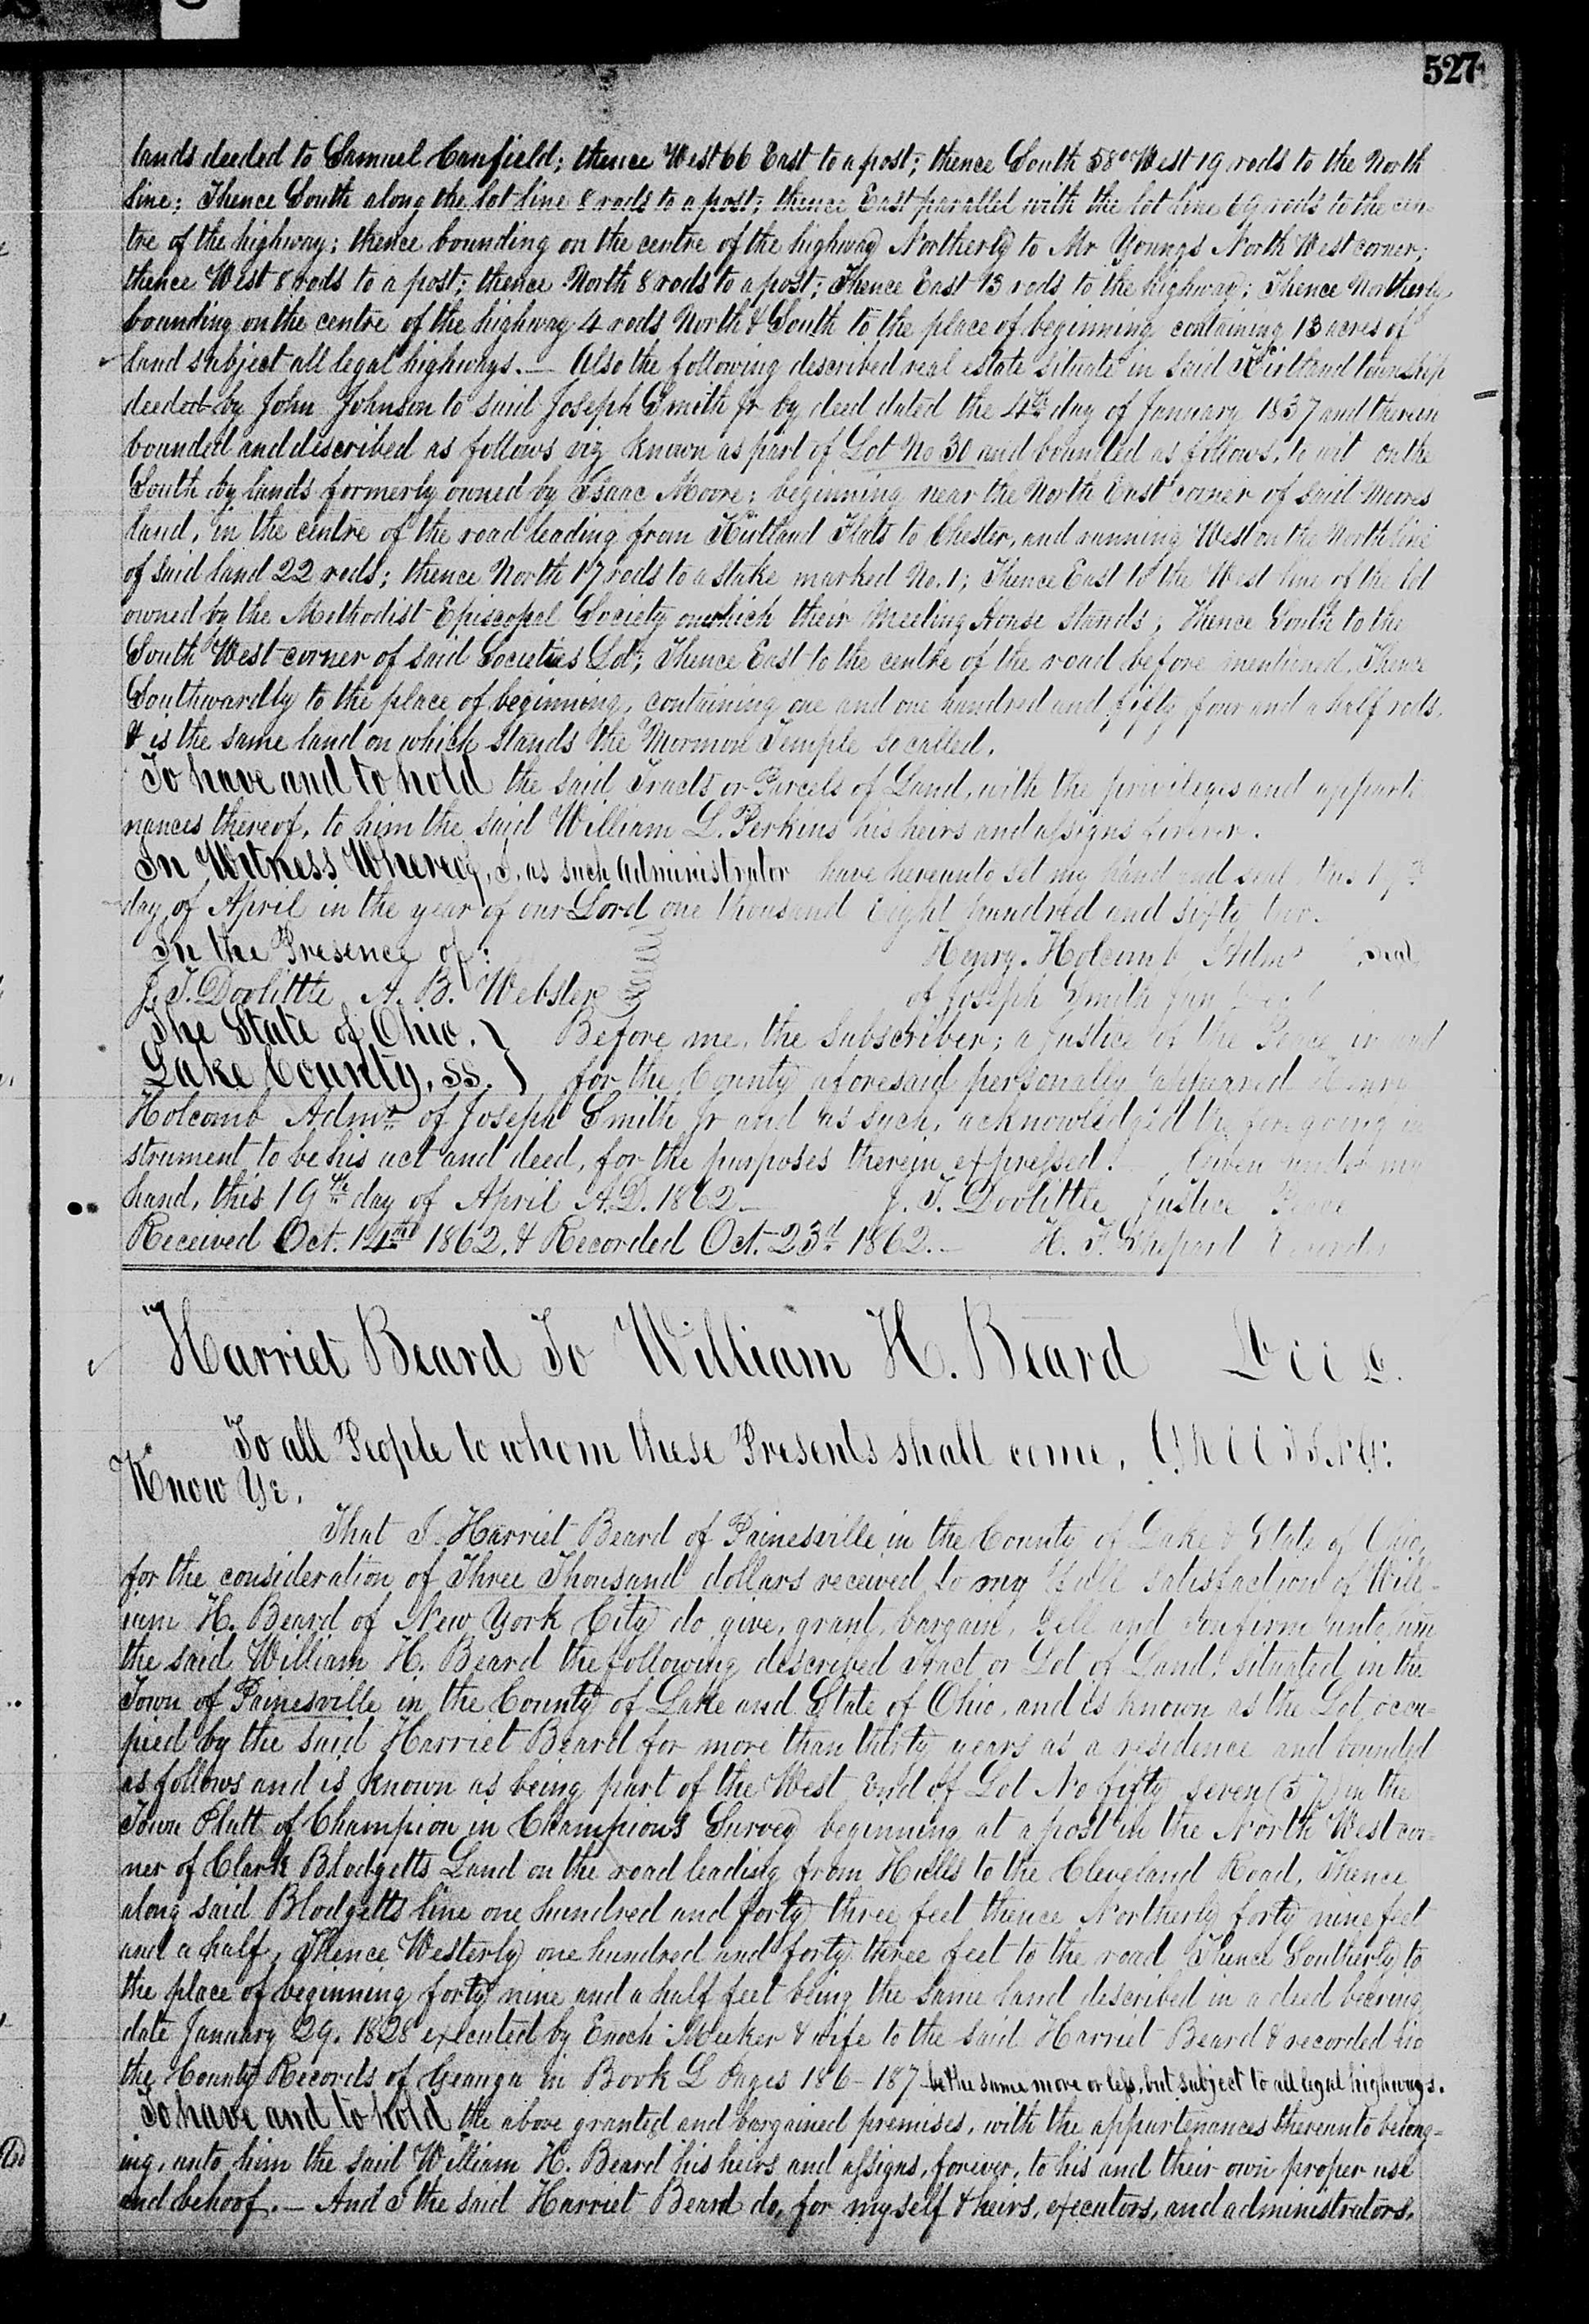 527
lands deeded to Samuel Canfield; thence West 66 East to a post; thence South 58° West 19 rods to the North
line; Thence South along the lot line 8 rods to a post; thence East parallel with the lot line 69 rods to the cen-
tre of the highway; thence bounding on the centre of the highway Northerly to Mr Youngs North West corner;
thence West 8 rods to a post; thence North 8 rods to a post; Thence East 13 rods to the highway; Thence Northerly
bounding on the centre of the highway 4 rods North & South to the place of beginning containing 13 acres of
land subject all legal highways. — Also the following described real estate situate in said Kirtland township
deeded by John Johnson to said Joseph Smith Jr by deed dated the 4th day of January 1837 and therein
bounded and described as follows viz known as part of Lot No 30 and bounded as follows, to wit on the
South by lands formerly owned by Isaac Moore; beginning near the North East corner of said Moores
land, in the centre of the road leading from Kirtland Flats to Chester, and running West on the North line
of said land 22 rods; thence North 17 rods to a stake marked No. 1; Thence East to the West line of the lot
owned by the Methodist Episcopal Society on which their Meeting House stands; Thence South to the
South West corner of said Societies Lot; Thence East to the centre of the road before mentioned. Thence
Southwardly to the place of beginning, containing one and one hundred and fifty four and a half rods.
& is the same land on which stands the Mormon Temple so called.
To have and to hold the said Tracts or Parcels of Land, with the privileges and apparte
nances thereof, to him the said William L. Perkins his heirs and assigns forever.
In Witness Whereof, I, as such Administrator have hereunto set my hand and seal this 19th
day of April in the year of our Lord one thousand Eight hundred and sixty two.
In the Presence of: Henry Holcomb Adm Seal
J. T. Doolittle A. B. Webster of Joseph Smith Jun
The State of Ohio, } Before me, the Subscriber; a Justice of the Peace in and
Lake County, SS. } for the County aforesaid personally appeared Henry
Holcomb Admr of Joseph Smith Jr and as such, acknowledged the foregoing in
strument to be his act and deed, for the purposes therein expressed. Given under my
hand, this 19th day of April A.D. 1862 — J. T. Doolittle Justice Peace
Received Oct. 14th 1862, & Recorded Oct. 23d 1862. — H. T. Shepard Recorder
Harriet Beard To William H. Beard Deed.
To all People to whom these Presents shall come, Greeting:
Know Ye,
That I Harriet Beard of Painesville in the County of Lake & State of Ohio,
for the consideration of Three Thousand dollars received to my full satisfaction of Will-
iam H. Beard of New York City do give, grant, bargain, sell and confirm unto him
the said William H. Beard the following described Tract or Lot of Land, situated in the
Town of Painesville in the County of Lake and State of Ohio, and is known as the Lot occu-
pied by the said Harriet Beard for more than thirty years as a residence and bounded
as follows and is known as being part of the West End of Lot No fifty seven (57) in the
Town Platt of Champion in Champions Survey beginning at a post in the North West cor-
ner of Clark Blodgetts Land on the road leading from Hulls to the Cleveland Road, Thence
along said Blodgetts line one hundred and forty three feet thence Northerly forty nine feet
and a half, Thence Westerly one hundred and forty three feet to the road Thence Southerly to
the place of beginning forty nine and a half feet being the same land described in a deed bearing
date January 29, 1828 executed by Enoch Meeker & wife to the said Harriet Beard & recorded in
the County Records of Geauga in Book L Pages 186 - 187 be the same more or less, but subject to all legal highways.
To have and to hold the above granted and bargained premises, with the appurtenances thereunto belong-
ing, unto him the said William H. Beard his heirs and assigns, forever, to his and their own proper use
and behoof. — And I the said Harriet Beard do, for myself & heirs, executors, and administrators,